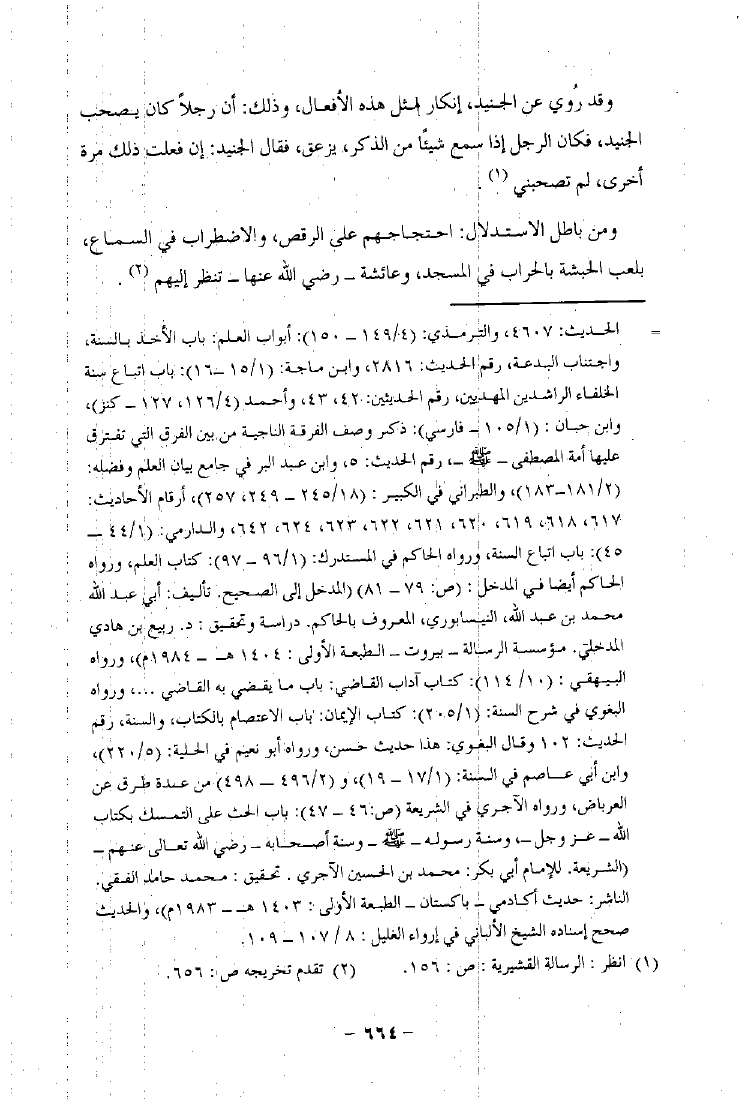 وقد رُوي عن الجنيد، إنكار لمثل هذه الأفعال، وذلك: أن رجلاً كان يصحب
الجنيد، فكان الرجل إذا سمع شيئًا من الذكر، يزعق، فقال الجنيد: إن فعلت ذلك مرة
أخرى، لم تصحبني (١) .
ومن باطل الاستدلال: احتجاجهم على الرقص، والاضطراب في السماع،
بلعب الحبشة بالحراب في المسجد، وعائشة ــ رضي الله عنها ــ تنظر إليهم (٢) .
= الحديث: ٤٦٠٧، والترمذي: (١٤٩/٤ ــ ١٥٠): أبواب العلم: باب الأخذ بالسنة،
واجتناب البدعة، رقم الحديث: ٢٨١٦، وابن ماجة: (١٥/١ ــ ١٦): باب اتباع سنة
الخلفاء الراشدين المهديين، رقم الحديثين: ٤٢، ٤٣، وأحمد (١٢٦/٤، ١٢٧ ــ كنز)،
وابن حبان : (١٠٥/١ ــ فارسي): ذكر وصف الفرقة الناجية من بين الفرق التي تفترق
عليها أمة المصطفى ــ ﷺ ــ، رقم الحديث: ٥، وابن عبد البر في جامع بيان العلم وفضله:
(١٨١/٢ــ١٨٣)، والطبراني في الكبير : (٢٤٥/١٨ ــ ٢٤٩، ٢٥٧)، أرقام الأحاديث:
٦١٧، ٦١٨، ٦١٩، ٦٢٠، ٦٢١، ٦٢٢، ٦٢٣، ٦٢٤، ٦٤٢، والدارمي: (٤٤/١ ــ
٤٥): باب اتباع السنة، ورواه الحاكم في المستدرك: (٩٦/١ ــ ٩٧): كتاب العلم، ورواه
الحاكم أيضا في المدخل : (ص: ٧٩ ــ ٨١) (المدخل إلى الصحيح. تأليف: أبي عبد الله
محمد بن عبد الله، النيسابوري، المعروف بالحاكم. دراسة وتحقيق : د. ربيع بن هادي
المدخلي. مؤسسة الرسالة ــ بيروت ــ الطبعة الأولى : ١٤٠٤ هـ ــ ١٩٨٤م)، ورواه
البيهقي : (١١٤/١٠): كتاب آداب القاضي: باب ما يقضي به القاضي ...، ورواه
البغوي في شرح السنة: (٢٠٥/١): كتاب الإيمان: باب الاعتصام بالكتاب، والسنة، رقم
الحديث: ١٠٢ وقال البغوي: هذا حديث حسن، ورواه أبو نعيم في الحلية: (٢٢٠/٥)،
وابن أبي عاصم في السنة: (١٧/١ ــ ١٩)، و (٤٩٦/٢ ــ ٤٩٨) من عدة طرق عن
العرباض، ورواه الآجري في الشريعة (ص:٤٦ ــ ٤٧): باب الحث على التمسك بكتاب
الله ــ عز وجل ــ، وسنة رسوله ــ ﷺ ــ وسنة أصحابه ــ رضي الله تعالى عنهم ــ
(الشريعة. للإمام أبي بكر: محمد بن الحسين الآجري . تحقيق : محمد حامد الفقي.
الناشر: حديث أكادمي ــ باكستان ــ الطبعة الأولى : ١٤٠٣ هـ ــ ١٩٨٣م)، والحديث
صحح إسناده الشيخ الألباني في إرواء الغليل : ٨ / ١٠٧ ــ ١٠٩.
(١) انظر : الرسالة القشيرية : ص : ١٥٦. (٢) تقدم تخريجه ص : ٦٥٦.
– ٦٦٤ –